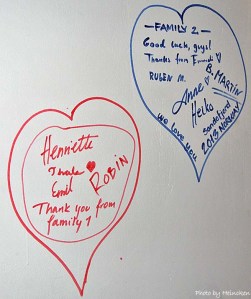 — FAMILY 2. —
Good luck, guys!
Thanks from
RUBEN M.
B. MARTIN
Anne
Heiko
Sandefjord
2013 NORWAY
we love you
Henriette
Emil
ROBIN
Thank you from
family 1
Photo by Heinoken